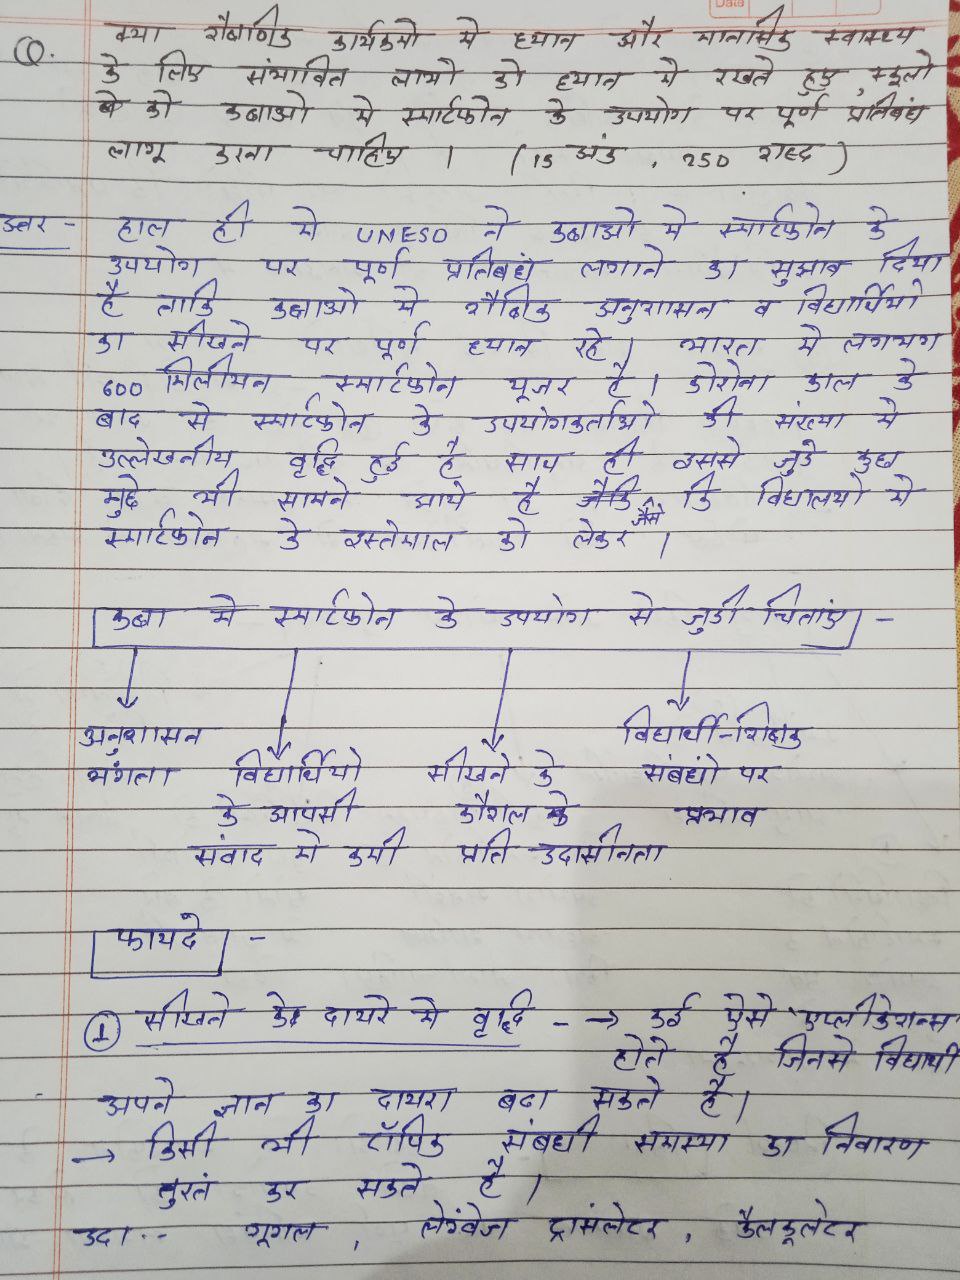 Date
Q. क्या शैक्षणिक कार्यक्रमो मे ध्यान और मानसिक स्वास्थ्य
के लिए संभावित लाभो को ध्यान मे रखते हुए स्कूलो
को कक्षाओ मे स्मार्टफोन के उपयोग पर पूर्ण प्रतिबंध
लागू करना चाहिए । (15 अंक , 250 शब्द)
उत्तर - हाल ही मे UNESO ने कक्षाओ मे स्मार्टफोन के
उपयोग पर पूर्ण प्रतिबंध लगाने का सुझाव दिया
है ताकि कक्षाओ मे शैक्षिक अनुशासन व विद्यार्थियो
का सीखने पर पूर्ण ध्यान रहे । भारत मे लगभग
600 मिलीयन स्मार्टफोन यूजर है । कोरोना काल के
बाद से स्मार्टफोन के उपयोगकर्ताओ की संख्या मे
उल्लेखनीय वृद्धि हुई है साथ ही इससे जुडे कुछ
मुद्दे भी सामने आये है जैसे कि विद्यालयो मे
स्मार्टफोन के इस्तेमाल को लेकर ।
कक्षा मे स्मार्टफोन के उपयोग से जुडी चिंताए -
अनुशासन विद्यार्थी-शिक्षक
भंगता विद्यार्थियो सीखने के संबंधो पर
के आपसी कौशल के प्रभाव
संवाद मे कमी प्रति उदासीनता
फायदे -
① सीखने के दायरे मे वृद्धि - → कई ऐसे एप्लीकेशन्स
होते है जिनसे विद्यार्थी
अपने ज्ञान का दायरा बढा सकते है ।
→ किसी भी टॉपिक संबंधी समस्या का निवारण
तुरतं कर सकते है ।
उदा. - गूगल , लेंग्वेज ट्रासंलेटर , कैलकूलेटर